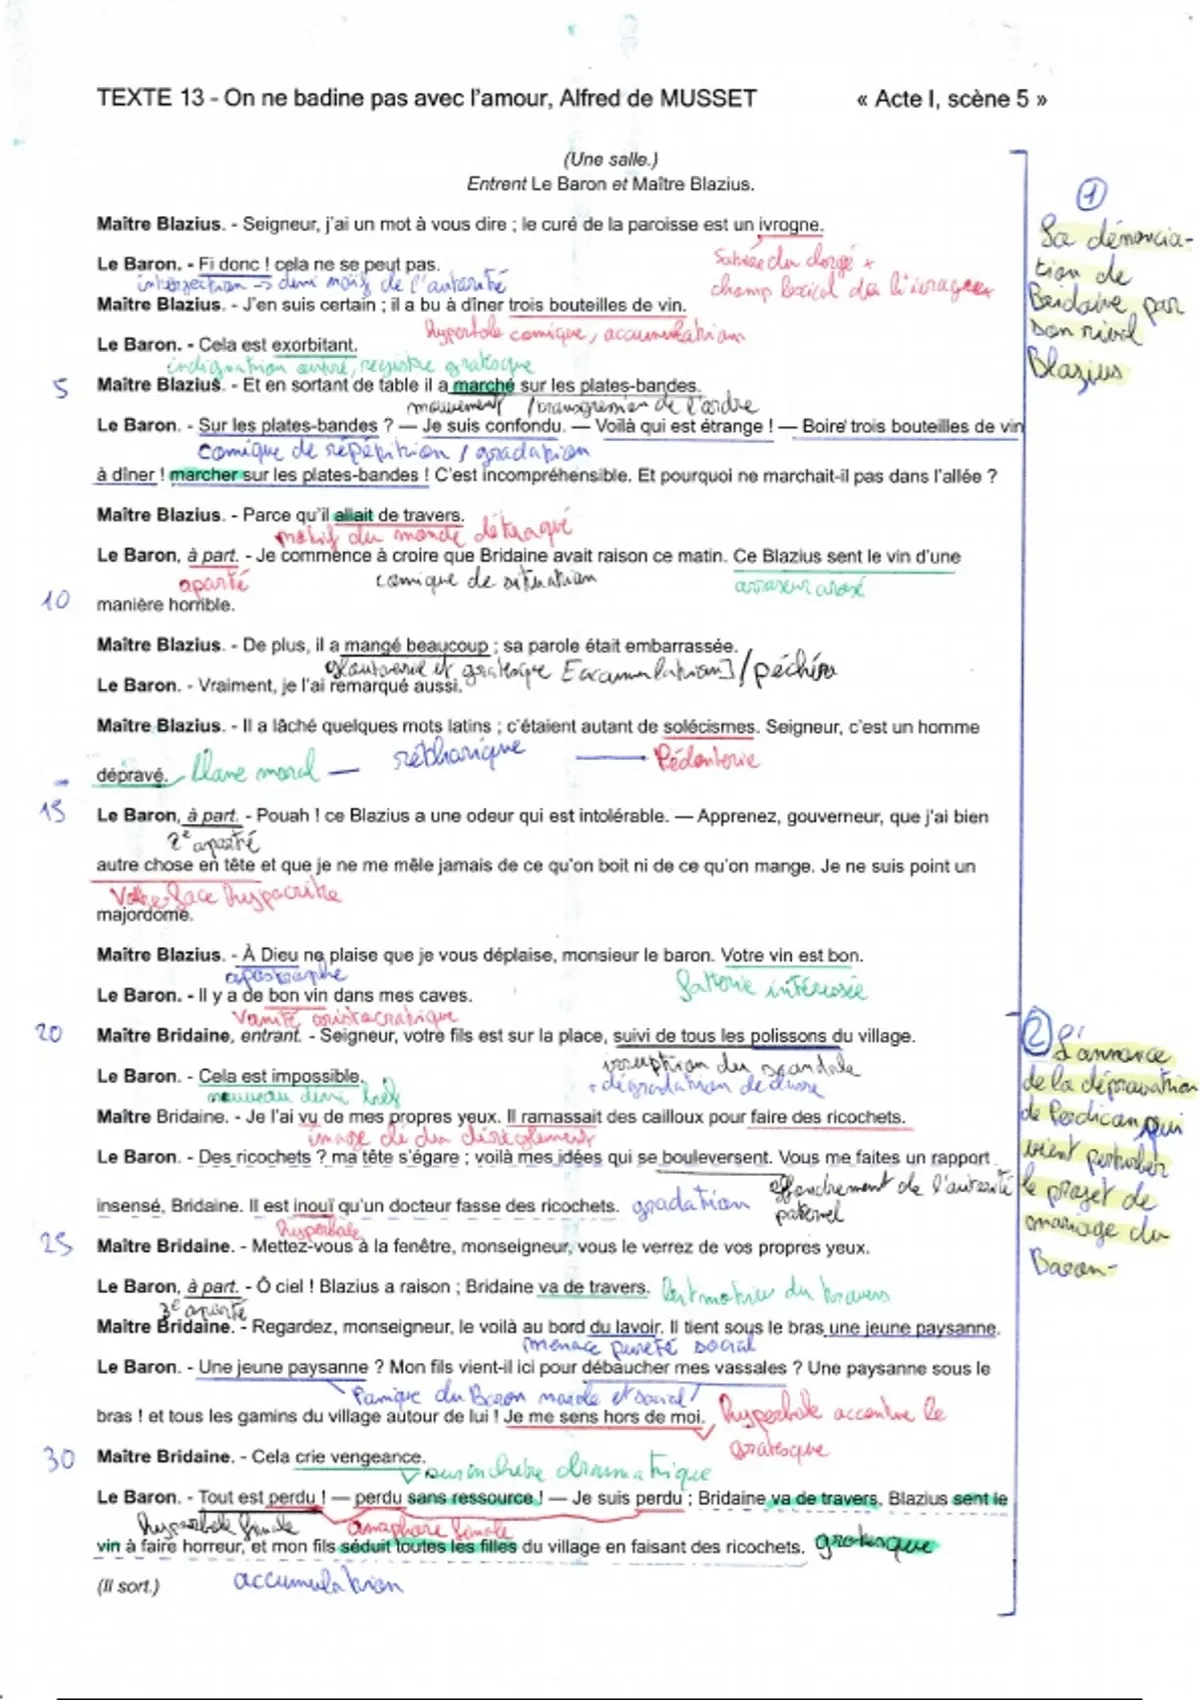 TEXTE 13 - On ne badine pas avec l'amour, Alfred de MUSSET « Acte I, scène 5 »
(Une salle.)
Entrent Le Baron et Maître Blazius.
①
Maître Blazius. - Seigneur, j'ai un mot à vous dire ; le curé de la paroisse est un ivrogne.
Satire du clergé +
champ lexical de l'ivrogne
La dénoncia-
tion de
Bridaine par
son rival
Blazius
Le Baron. - Fi donc ! cela ne se peut pas.
interjection → de l'autorité
Maître Blazius. - J'en suis certain ; il a bu à dîner trois bouteilles de vin.
hyperbole comique, accumulation
Le Baron. - Cela est exorbitant.
indignation outré, registre grotesque
5
Maître Blazius. - Et en sortant de table il a marché sur les plates-bandes.
mouvement / transgression de l'ordre
Le Baron. - Sur les plates-bandes ? — Je suis confondu. — Voilà qui est étrange ! — Boire trois bouteilles de vin
comique de répétition / gradation
à dîner ! marcher sur les plates-bandes ! C'est incompréhensible. Et pourquoi ne marchait-il pas dans l'allée ?
Maître Blazius. - Parce qu'il allait de travers.
motif du monde détraqué
Le Baron, à part. - Je commence à croire que Bridaine avait raison ce matin. Ce Blazius sent le vin d'une
aparté comique de situation arroseur arrosé
10
manière horrible.
Maître Blazius. - De plus, il a mangé beaucoup ; sa parole était embarrassée.
gloutonnerie et grotesque [accumulation] /
Le Baron. - Vraiment, je l'ai remarqué aussi.
Maître Blazius. - Il a lâché quelques mots latins ; c'étaient autant de solécismes. Seigneur, c'est un homme
réthorique — Pédanterie
dépravé. moral —
15
Le Baron, à part. - Pouah ! ce Blazius a une odeur qui est intolérable. — Apprenez, gouverneur, que j'ai bien
2e aparté
autre chose en tête et que je ne me mêle jamais de ce qu'on boit ni de ce qu'on mange. Je ne suis point un
Volte-face hypocrite
majordome.
Maître Blazius. - À Dieu ne plaise que je vous déplaise, monsieur le baron. Votre vin est bon.
apostrophe flatterie intéressée
Le Baron. - Il y a de bon vin dans mes caves.
Vanité aristocratique
20
Maître Bridaine, entrant. - Seigneur, votre fils est sur la place, suivi de tous les polissons du village.
irruption du scandale
+ dégradation de classe
② L'annonce
de la dépravation
de Perdican qui
vient perturber
le projet de
mariage du
Baron-
Le Baron. - Cela est impossible.
nouveau
Maître Bridaine. - Je l'ai vu de mes propres yeux. Il ramassait des cailloux pour faire des ricochets.
image clé du dérèglement
Le Baron. - Des ricochets ? ma tête s'égare ; voilà mes idées qui se bouleversent. Vous me faites un rapport
effondrement de l'autorité
paternel
insensé, Bridaine. Il est inouï qu'un docteur fasse des ricochets. gradation
hyperbole
25
Maître Bridaine. - Mettez-vous à la fenêtre, monseigneur, vous le verrez de vos propres yeux.
Le Baron, à part. - Ô ciel ! Blazius a raison ; Bridaine va de travers. du travers
3e aparté
Maître Bridaine. - Regardez, monseigneur, le voilà au bord du lavoir. Il tient sous le bras une jeune paysanne.
menace pureté social
Le Baron. - Une jeune paysanne ? Mon fils vient-il ici pour débaucher mes vassales ? Une paysanne sous le
Panique du Baron morale et social
bras ! et tous les gamins du village autour de lui ! Je me sens hors de moi. hyperbole accentue le
grotesque
30
Maître Bridaine. - Cela crie vengeance.
surenchère dramatique
Le Baron. - Tout est perdu ! — perdu sans ressource ! — Je suis perdu ; Bridaine va de travers, Blazius sent le
hyperbole finale anaphore finale
vin à faire horreur, et mon fils séduit toutes les filles du village en faisant des ricochets. grotesque
(Il sort.) accumulation